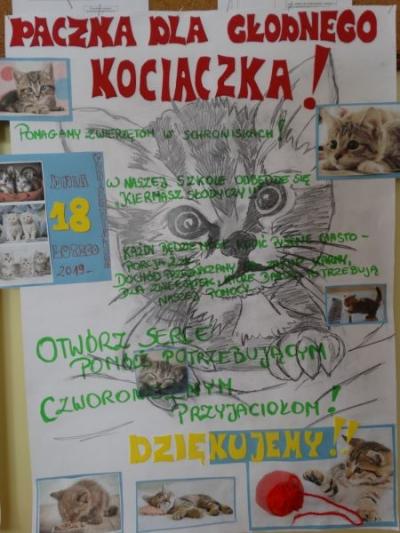 PACZKA DLA GŁODNEGO
KOCIACZKA!
POMAGAMY ZWIERZĘTOM W SCHRONISKACH!
DNIA
18
LUTEGO
2019
W NASZEJ SZKOLE ODBĘDZIE SIĘ
"KIERMASZ SŁODYCZY"!!
KAŻDY BĘDZIE MÓGŁ KUPIĆ PYSZNE CIASTO -
DOCHÓD PRZEKAZANY KARMY,
DLA ZWIERZĄTEK, KTÓRE BARDZO POTRZEBUJĄ
NASZEJ POMOCY.
OTWÓRZ SERCE
POMÓŻ POTRZEBUJĄCYM
CZWORONOŻNYM
PRZYJACIOŁOM!
DZIĘKUJEMY!!